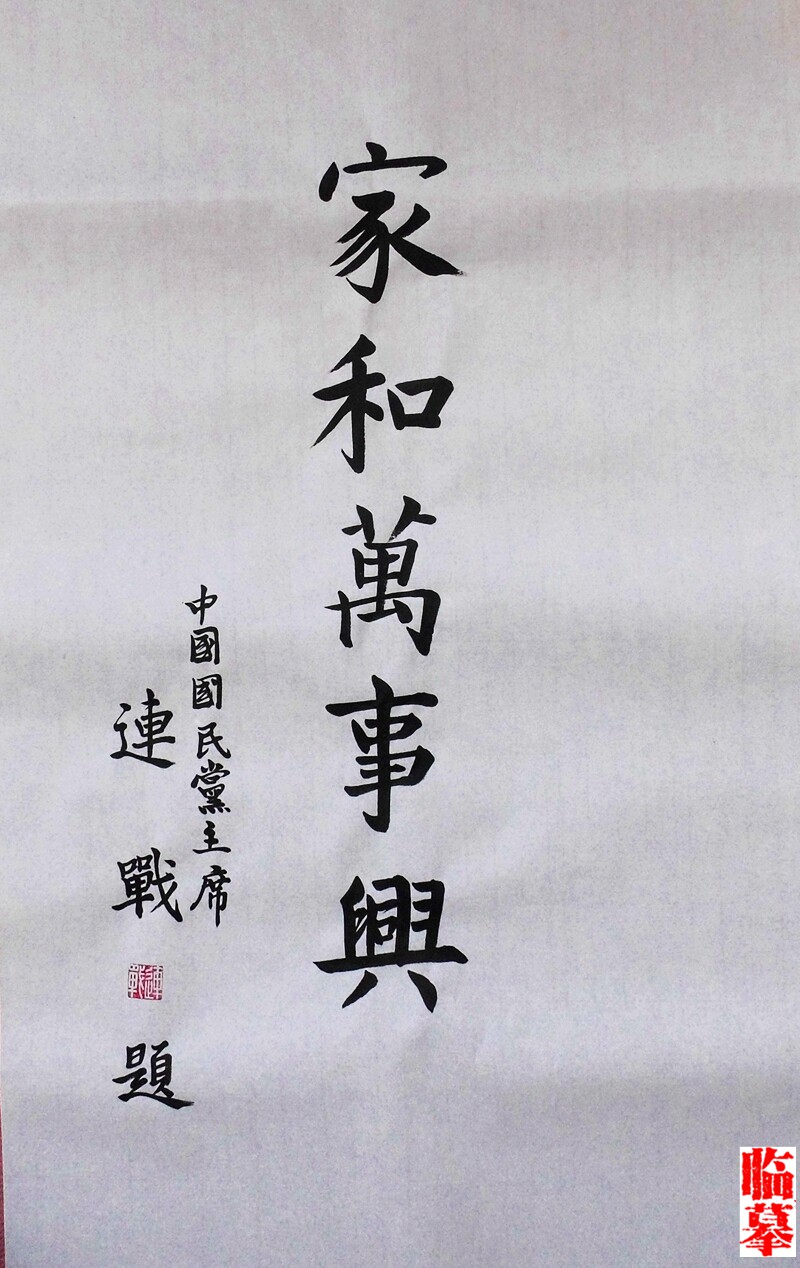 家和萬事興
中國國民黨主席
連戰 題
連戰
临摹